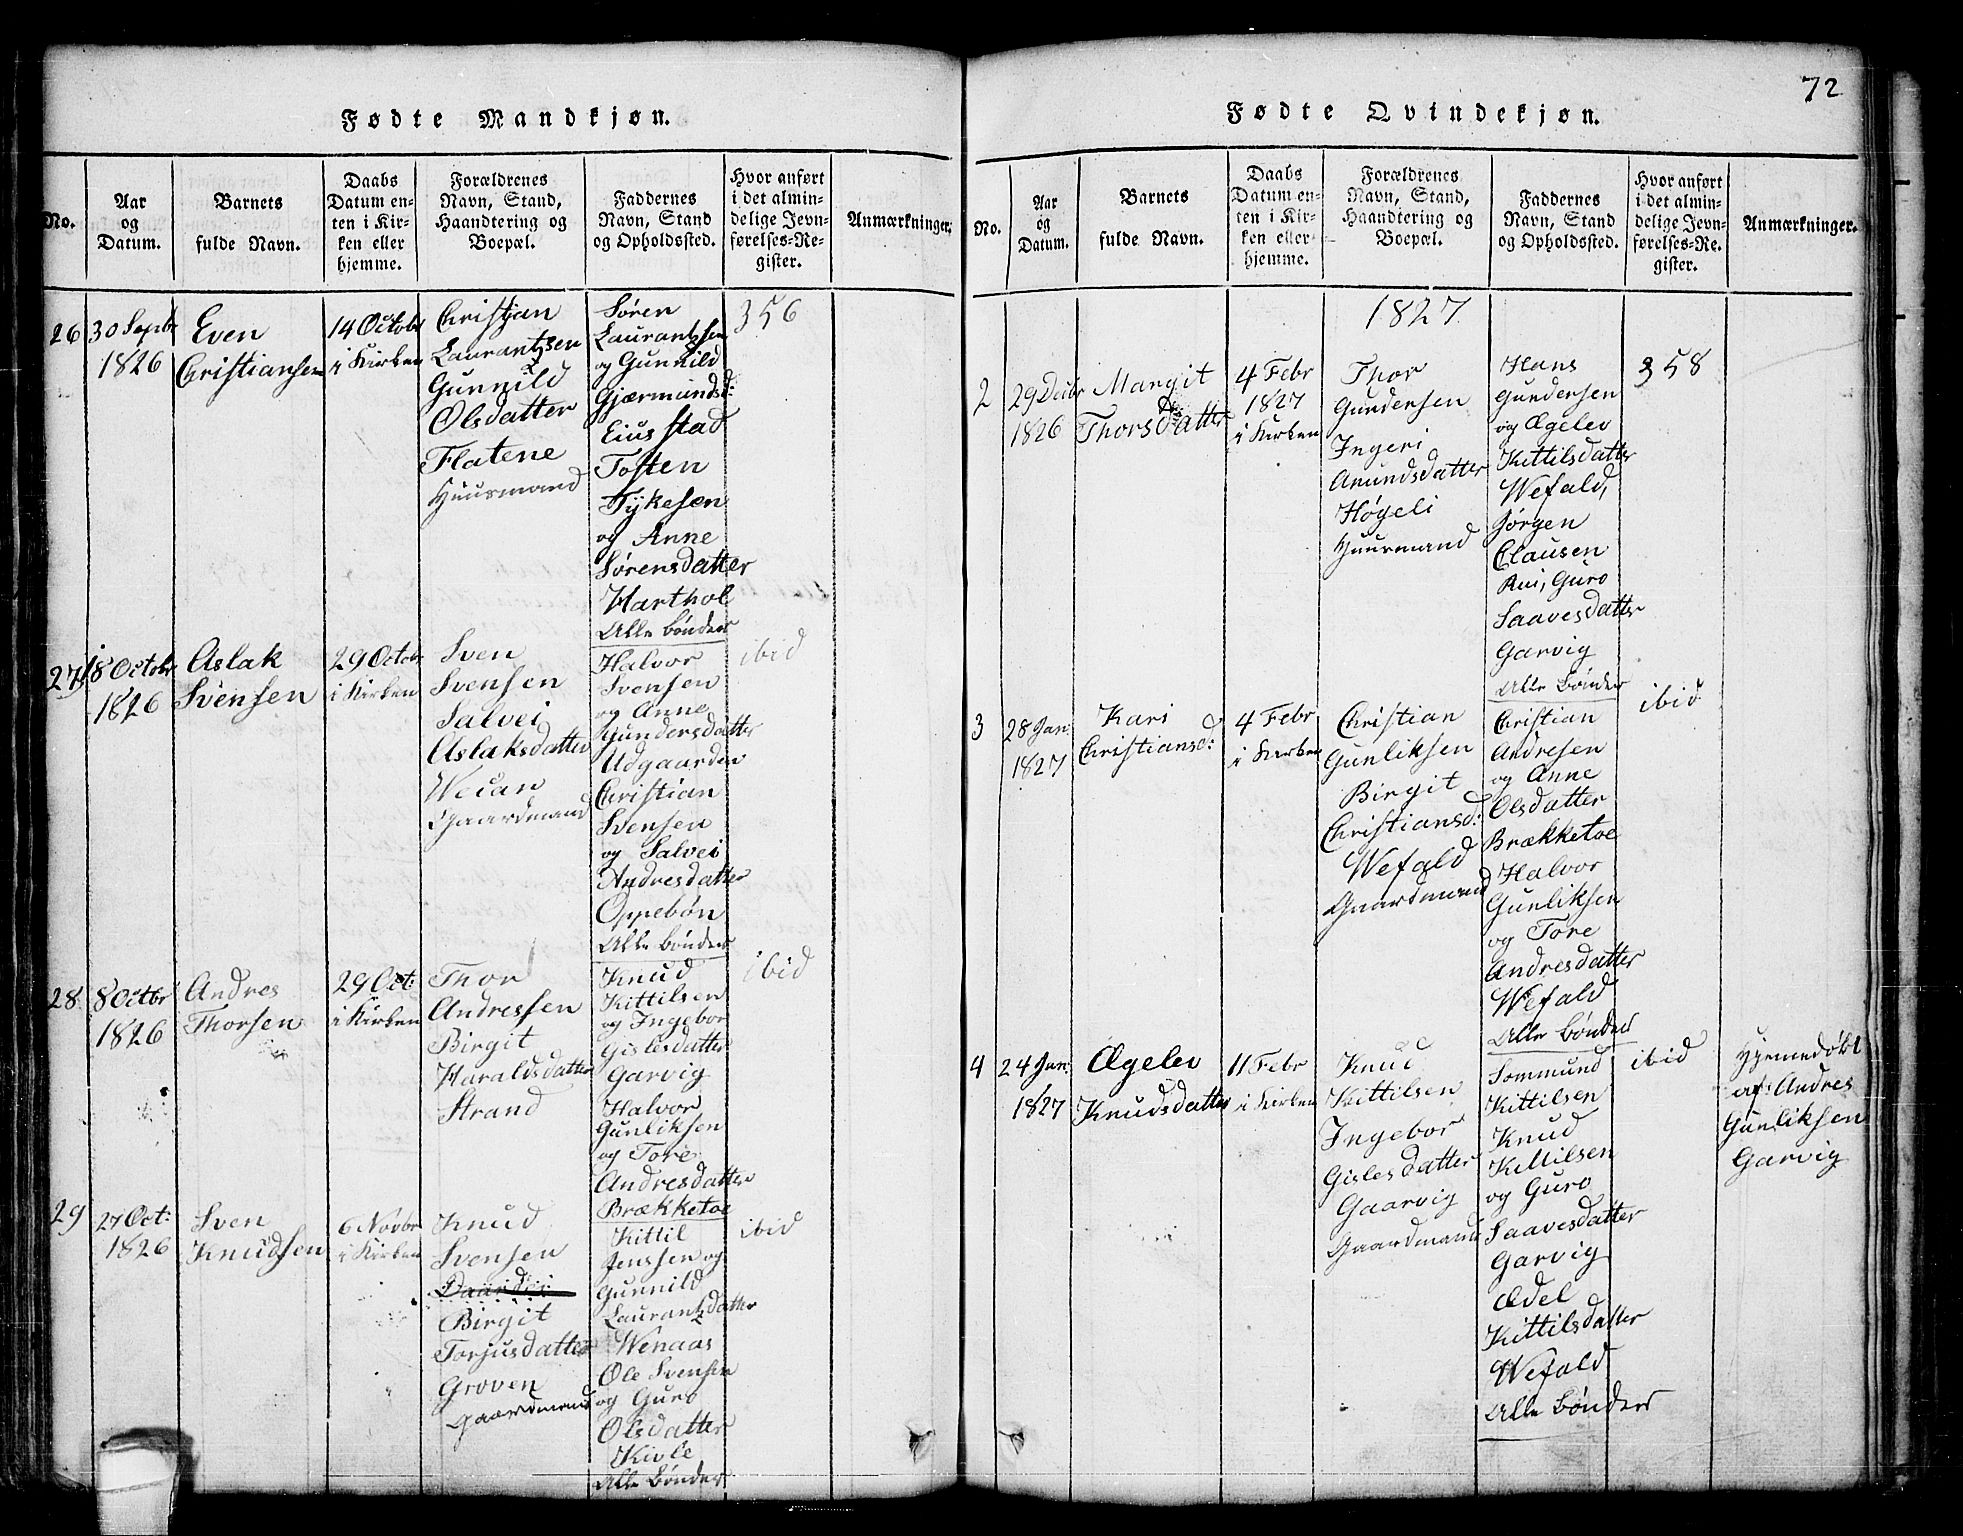 72
Fødte Mandkjøn.
No.
Aar
og
Datum.
Barnets
fulde Navn.
Daabs
Datum en-
ten i Kir-
ken eller
hjemme.
Forældrenes
Navn, Stand,
Haandtering og
Boepæl.
Faddernes
Navn, Stand
og Opholdssted.
Hvor anført
i det almin-
delige Jevn-
førelses-Re-
gister.
Anmærkninger.
26
30 Septr
1826
Even
Christiansen
14 Octobr
i Kirken
Christjan
Laurantzsen
Gunnild
Olsdatter
Flatene
Huusmand
Søren
Laurantzsen
og Gunnild
Gjærmundsd:
Eiusstad
Tosten
Tykesen
og Anne
Sørensdatter
Harthol
Alle bønder
356
27
18 Octobr
1826
Aslak
Svensen
29 Octobr
i Kirken
Sven
Svensen
Salvei
Aslaksdatter
Weian
Gaardmand
Halvor
Svensen
og Anne
Gundersdatter
Udgaarden
Christian
Svensen
og Salvei
Andresdatter
Oppebøn
Alle bønder
ibid
28
8 Octbr
1826
Andres
Thorsen
29 Oct:
i Kirken
Thor
Andressen
Birgit
Haraldsdatter
Strand
Knud
Kittilsen
og Ingebor
Gislesdatter
Garvig
Halvor
Gunliksen
og Tore
Andresdatter
Brækketoe
ibid
29
27 Oct:
1826
Sven
Knudsen
6 Novbr
i Kirken
Knud
Svensen
Birgit
Torjusdatter
Groven
Gaardmand
Kittil
Jenssen og
Gunnild
Laurantzdatter
Wenaas
Ole Svensen
og Guro
Olsdatter
Kivle
Alle Bønder
ibid
Fødte Qvindekjøn.
No.
Aar
og
Datum.
Barnets
fulde Navn.
Daabs
Datum en-
ten i Kir-
ken eller
hjemme.
Forældrenes
Navn, Stand,
Haandtering og
Boepæl.
Faddernes
Navn, Stand
og Opholdssted.
Hvor anført
i det almin-
delige Jevn-
førelses-Re-
gister.
Anmærkninger.
1827
2
29 Decbr
1826
Margit
Thorsdatter
4 Febr
1827
i Kirken
Thor
Gundersen
Ingeri
Amundsdatter
Høgeli
Huusmand
Hans
Gundersen
og Ægelev
Kittilsdatter
Wefald,
Jørgen
Clausen
Rui, Guro
Saavesdatter
Garvig
Alle bønder
358
3
28 Jan:
1827
Kari
Christiansd:
4 Febr
i Kirken
Christian
Gunliksen
Birgit
Christiansd:
Wefald
Gaardmand
Christian
Andresen
og Anne
Olsdatter
Brækketoe
Halvor
Gunliksen
og Tore
Andresdatter
Wefald
Alle bønder
ibid
4
24 Jan:
1827
Ægelev
Knudsdatter
11 Febr
i Kirken
Knud
Kittilsen
Ingebor
Gislesdatter
Gaarvig
Gaardmand
Sommund
Kittilsen
Knud
Kittilsen
og Guro
Saavesdatter
Garvig
Ædel
Kittilsdatter
Wefald
Alle bønder
ibid
Hjemedøbt
af: Andres
Gunliksen
Garvig